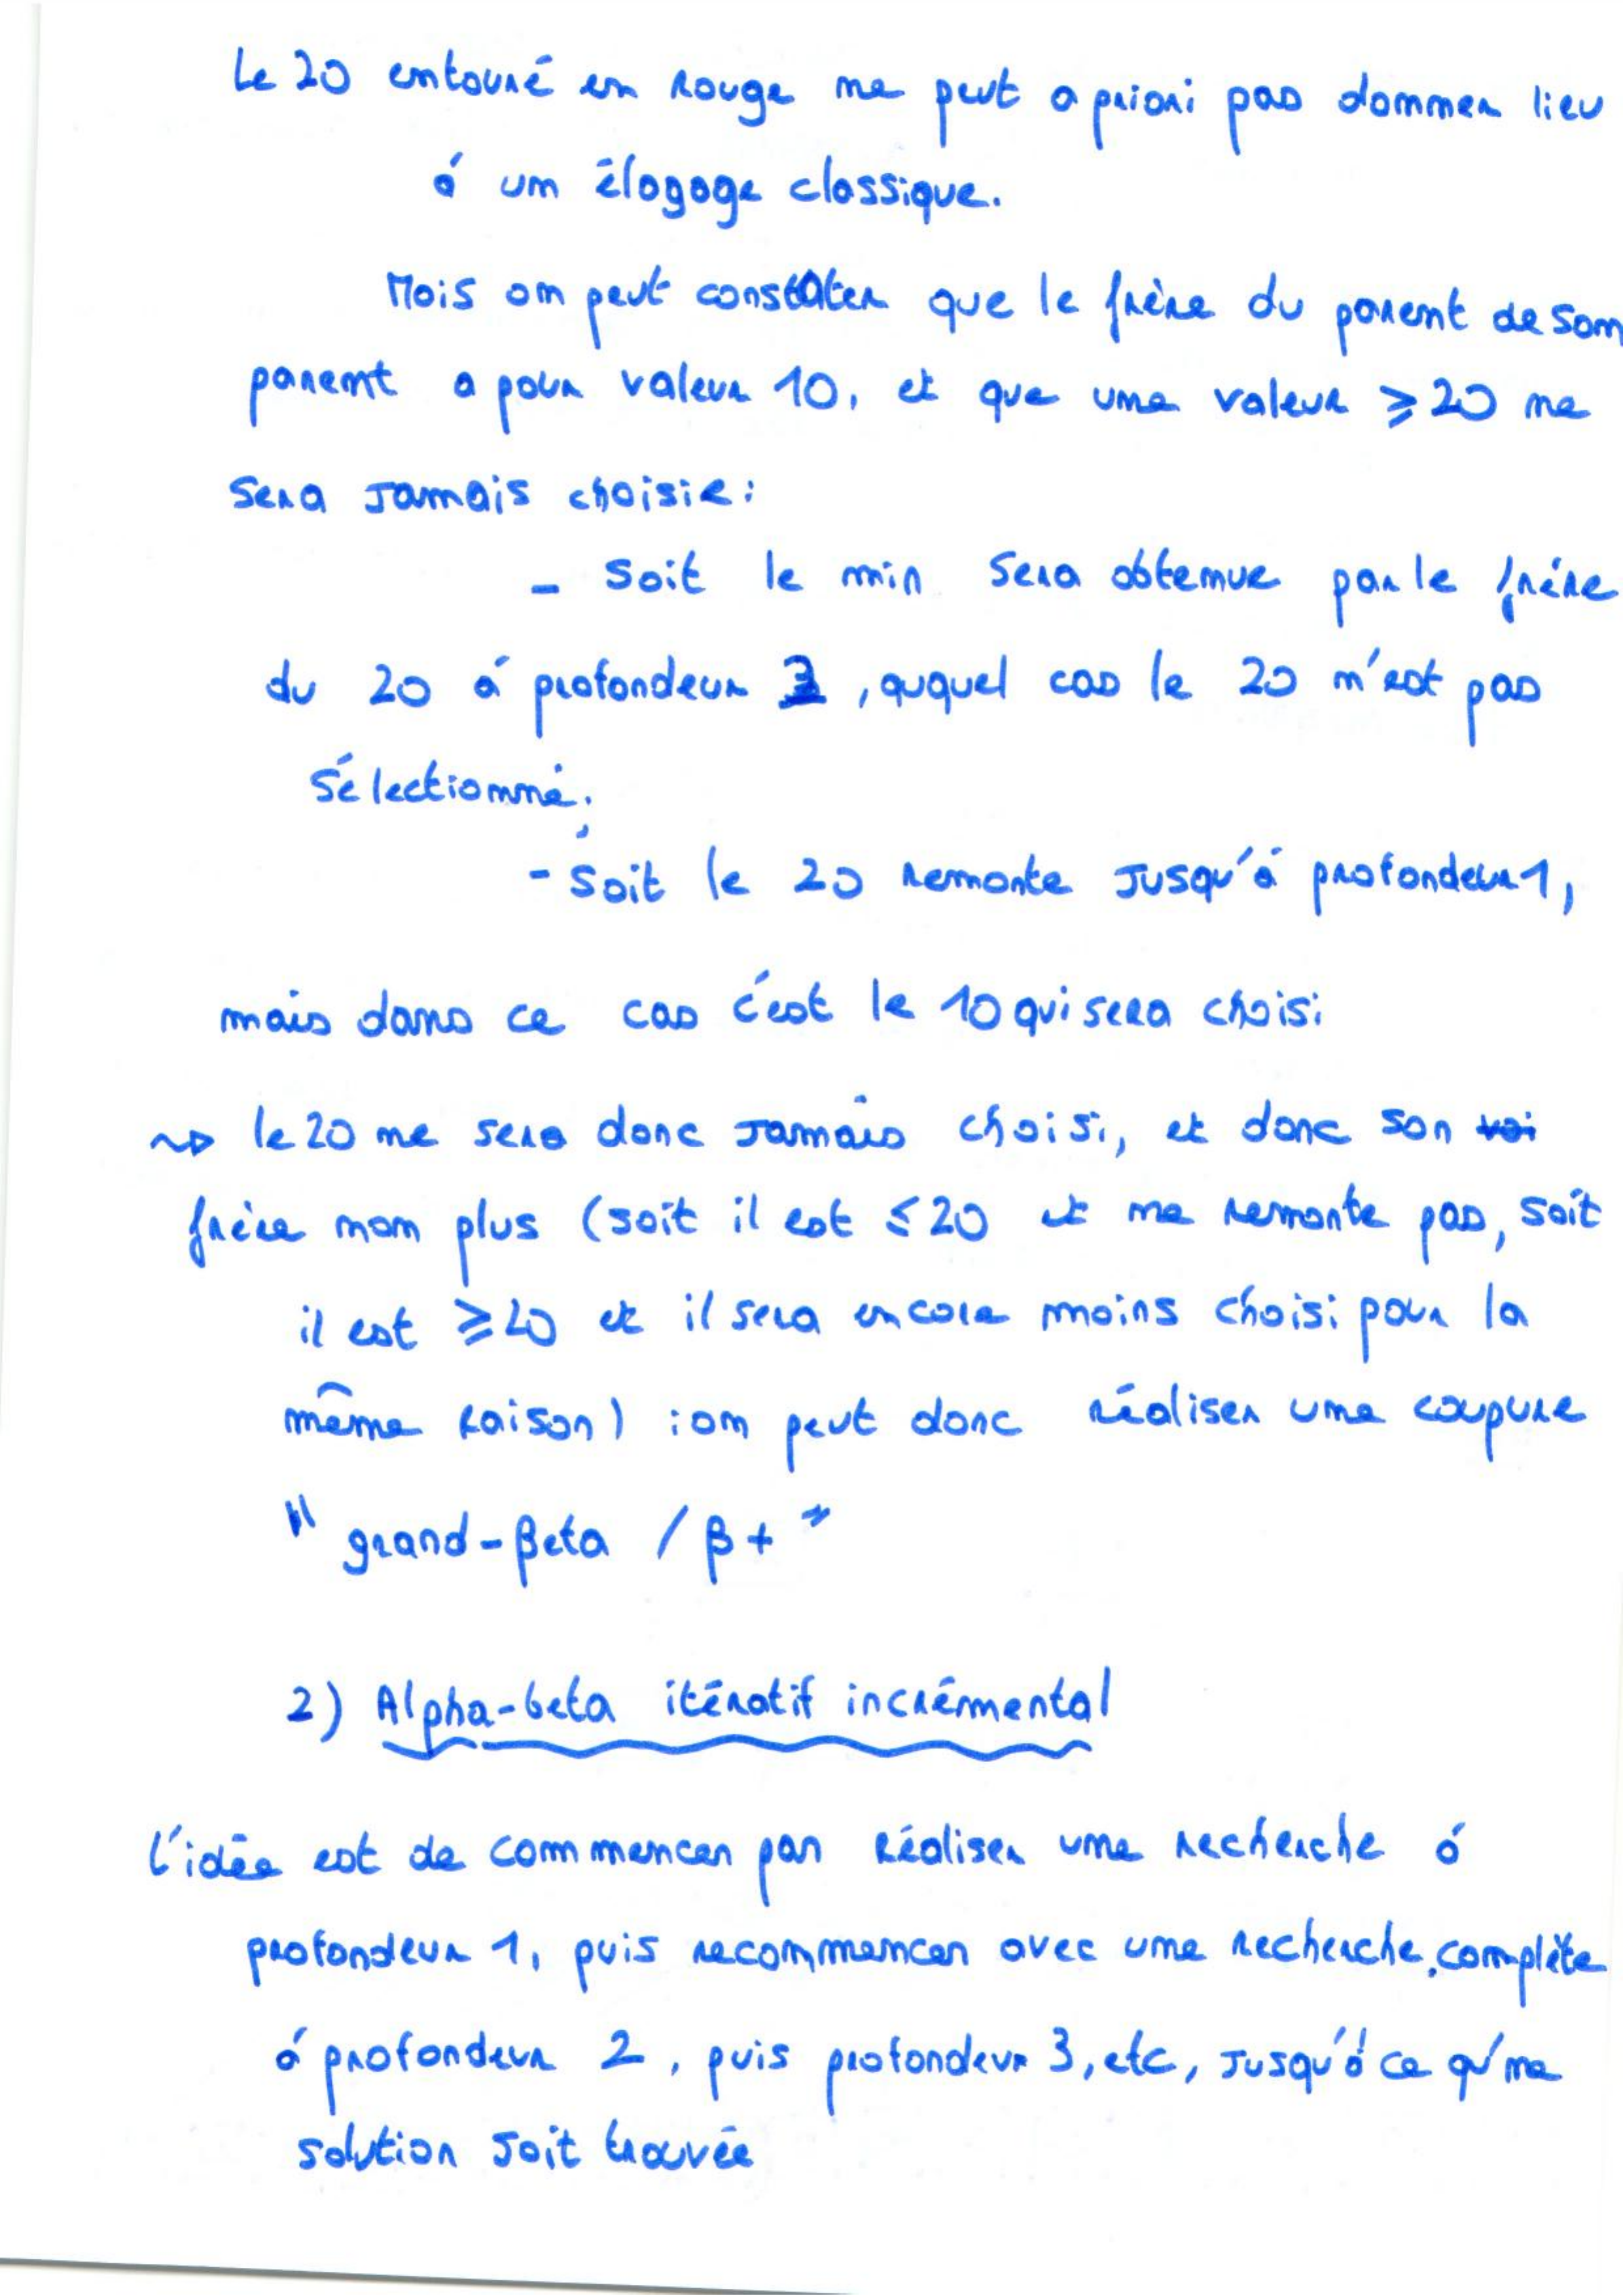 Le 20 entouré en rouge ne peut a priori pas donner lieu
à un élagage classique.
Mais on peut constater que le frère du parent de son
parent a pour valeur 10, et que une valeur ≥ 20 ne
sera jamais choisie :
- soit le min sera obtenue par le frère
du 20 à profondeur 3, auquel cas le 20 n'est pas
sélectionné;
- soit le 20 remonte jusqu'à profondeur 1,
mais dans ce cas c'est le 10 qui sera choisi
↝ le 20 ne sera donc jamais choisi, et donc son
frère non plus (soit il est ≤ 20 et ne remonte pas, soit
il est ≥ 20 et il sera encore moins choisi pour la
même raison) : on peut donc réaliser une coupure
" grand-beta / β+ "
2) Alpha-beta itératif incrémental
L'idée est de commencer par réaliser une recherche à
profondeur 1, puis recommencer avec une recherche complète
à profondeur 2, puis profondeur 3, etc, jusqu'à ce qu'ne
solution soit trouvée